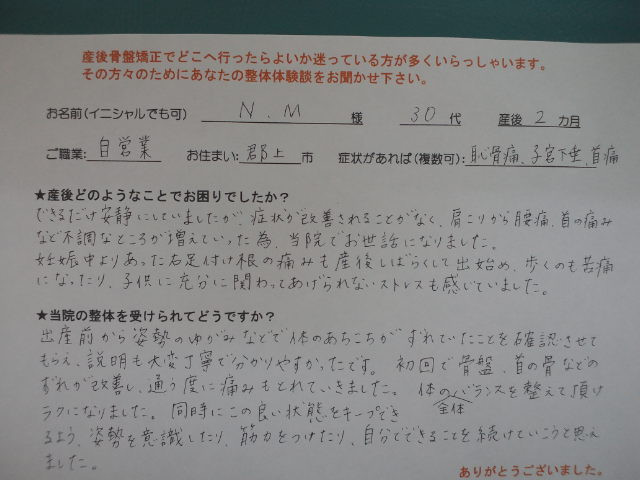 産後骨盤矯正でどこへ行ったらよいか迷っている方が多くいらっしゃいます。
その方々のためにあなたの整体体験談をお聞かせ下さい。
お名前(イニシャルでも可) N.M 様 30代 産後 2 カ月
ご職業: 自営業 お住まい: 郡上 市 症状があれば(複数可): 恥骨痛、子宮下垂、首痛
★産後どのようなことでお困りでしたか?
できるだけ安静にしていましたが、症状が改善されることがなく、肩こりから腰痛、首の痛み
など不調なところが増えていった為、当院でお世話になりました。
妊娠中よりあった右足付け根の痛みも産後しばらくして出始め、歩くのも苦痛
になったり、子供に充分に関わってあげられないストレスも感じていました。
★当院の整体を受けられてどうですか?
出産前から姿勢のゆがみなどで体のあちこちがずれていたことを確認させて
もらえ、説明も大変丁寧で分かりやすかったです。初回で骨盤、首の骨などの
ずれが改善し、通う度に痛みもとれていきました。体のバランスを整えて頂け
全体
ラクになりました。同時にこの良い状態をキープでき
るよう、姿勢を意識したり、筋力をつけたり、自分でできることを続けていこうと思え
ました。
ありがとうございました。